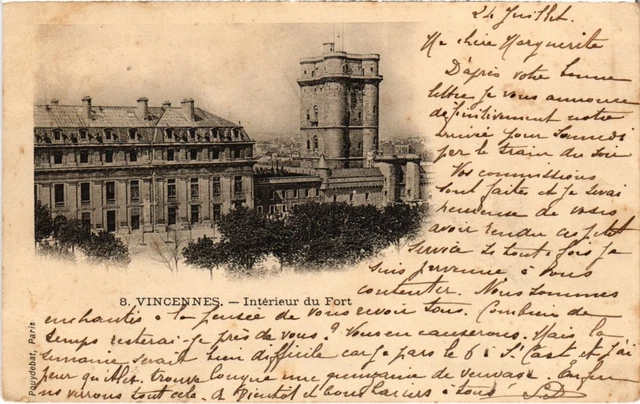 24 Juillet.
Ma chère Marguerite
D'après votre bonne
lettre je vous annonce
définitivement notre
arrivée pour Samedi
par le train du soir
Vos commissions
sont faites et je serai
heureuse de vous
avoir rendu ce petit
service si toutefois je
suis parvenue à vous
contenter. Nous sommes
8. VINCENNES. — Intérieur du Fort
enchantés à la pensée de vous revoir tous. Combien de
temps resterai-je près de vous? Nous en causerons. Mais la
semaine serait bien difficile car je pars le 6 à S. Cast et j'ai
peur qu'ils me trouve longue une quinzaine de veuvage. Enfin
nous verrons tout cela. A bientôt et bons baisers à tous
Pouydebat, Paris